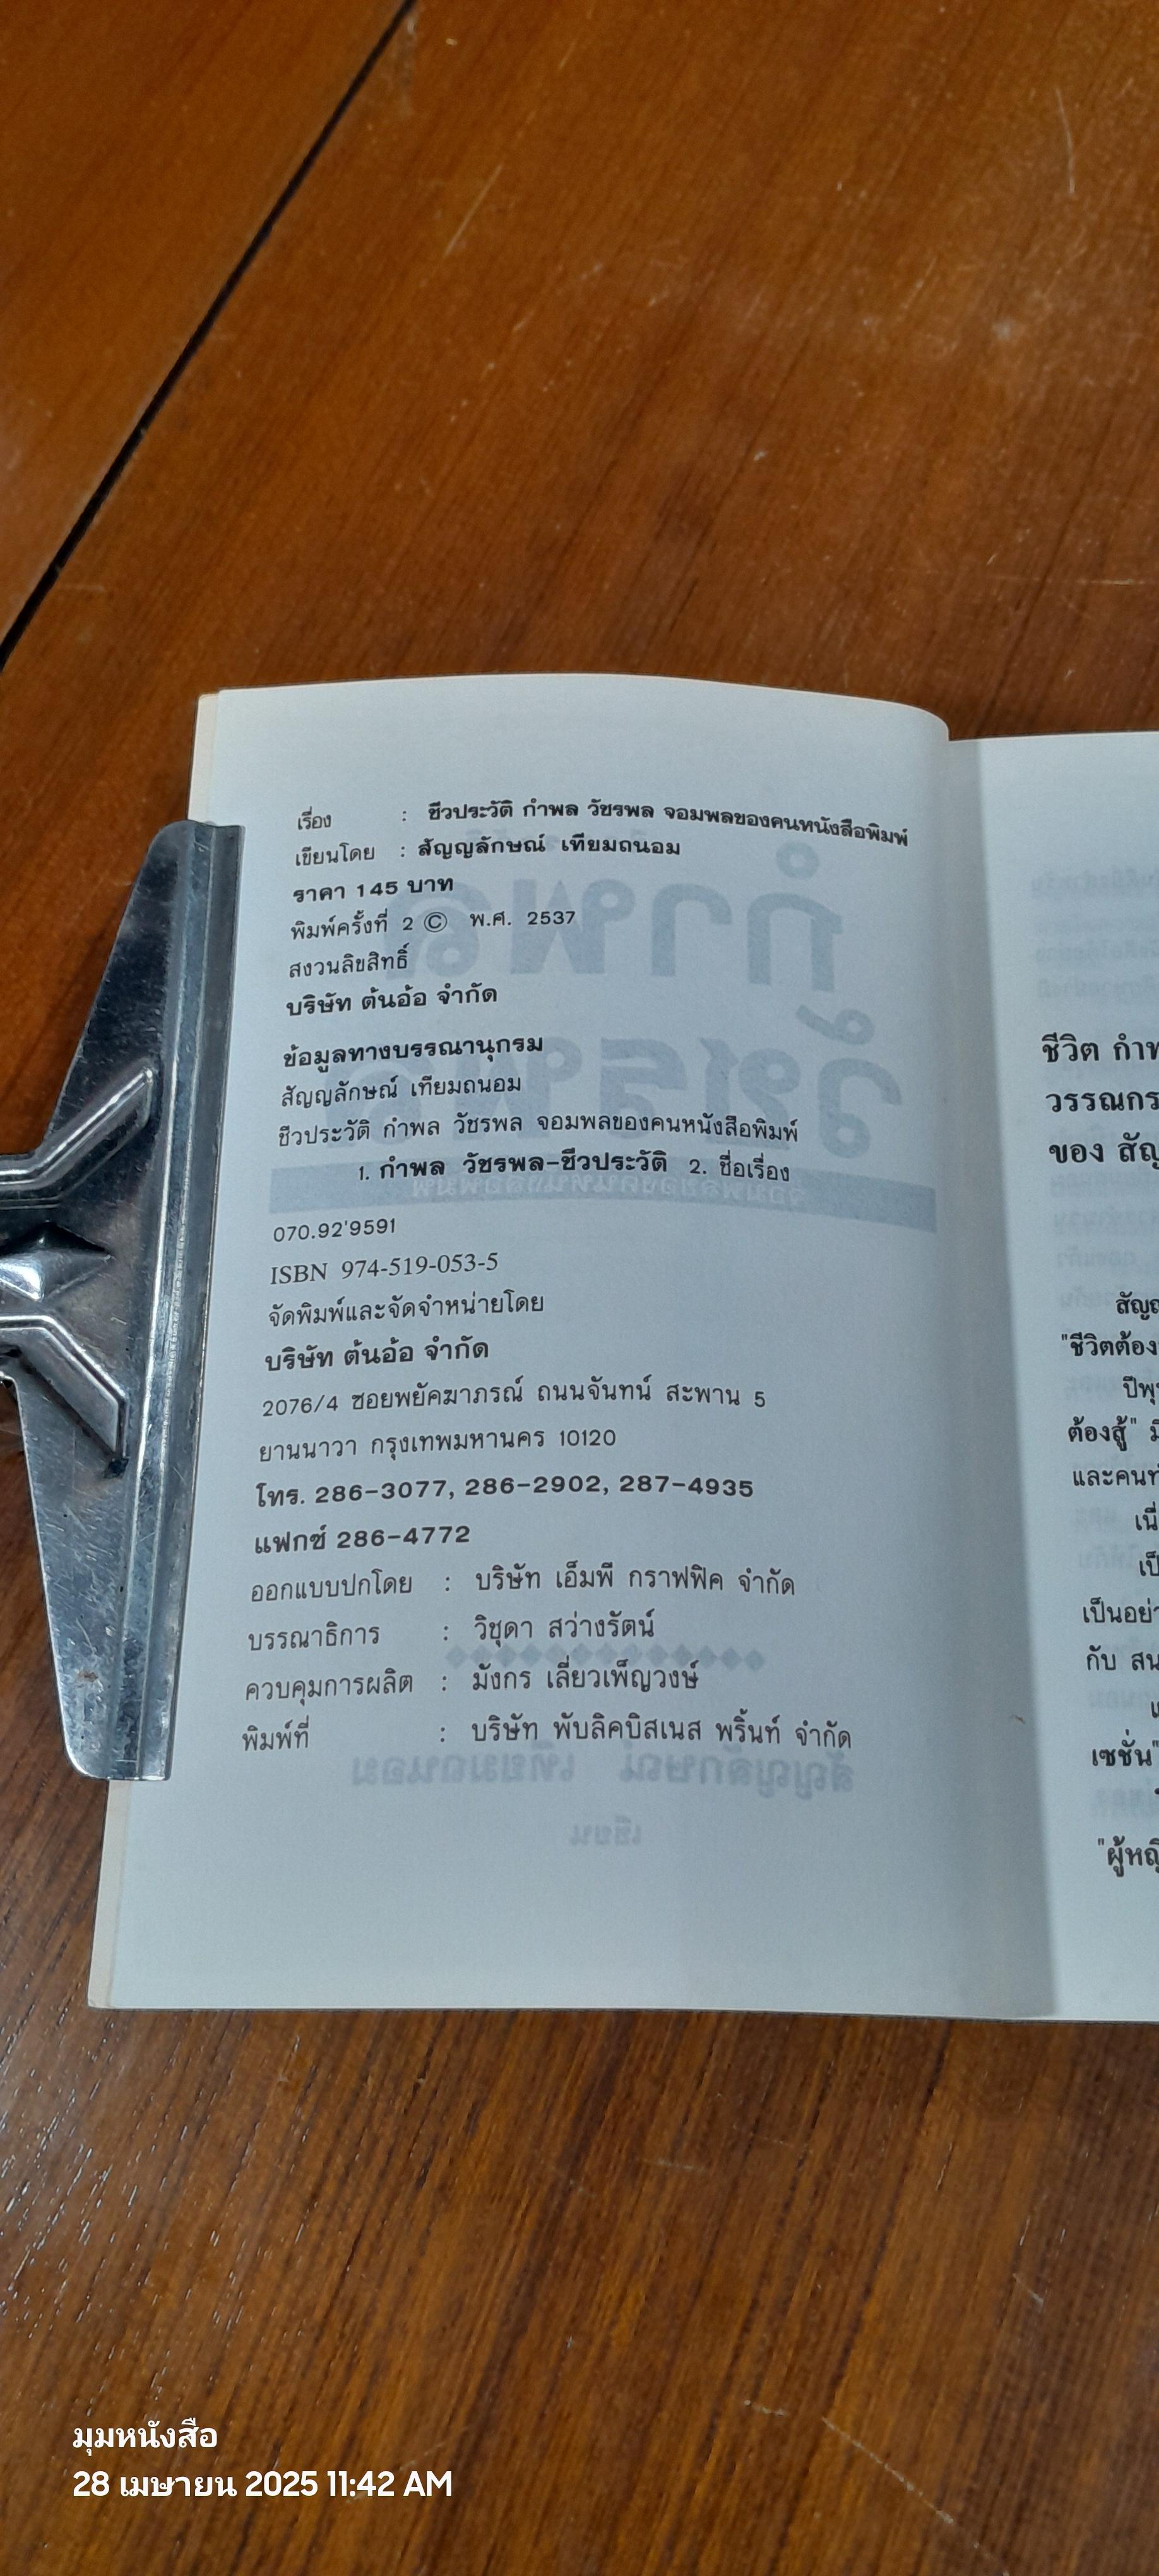 เรื่อง : ชีวประวัติ กำพล วัชรพล จอมพลของคนหนังสือพิมพ์
เขียนโดย : สัญญลักษณ์ เทียมถนอม
ราคา 145 บาท
พิมพ์ครั้งที่ 2 © พ.ศ. 2537
สงวนลิขสิทธิ์
บริษัท ต้นอ้อ จำกัด
ข้อมูลทางบรรณานุกรม
สัญญลักษณ์ เทียมถนอม
ชีวประวัติ กำพล วัชรพล จอมพลของคนหนังสือพิมพ์
1. กำพล วัชรพล-ชีวประวัติ 2. ชื่อเรื่อง
070.92'9591
ISBN 974-519-053-5
จัดพิมพ์และจัดจำหน่ายโดย
บริษัท ต้นอ้อ จำกัด
2076/4 ซอยพยัคฆาภรณ์ ถนนจันทน์ สะพาน 5
ยานนาวา กรุงเทพมหานคร 10120
โทร. 286-3077, 286-2902, 287-4935
แฟกซ์ 286-4772
ออกแบบปกโดย : บริษัท เอ็มพี กราฟฟิค จำกัด
บรรณาธิการ : วิชุดา สว่างรัตน์
ควบคุมการผลิต : มังกร เลี่ยวเพ็ญวงษ์
พิมพ์ที่ : บริษัท พับลิคบิสเนส พริ้นท์ จำกัด
ชีวิต
วรรณกร
ของ สัญ
สัญ
"ชีวิตต้อง
ปีพุ
ต้องสู้"
และคนท
เนื่
เป็
เป็นอย่า
กับ สน
เซชั่น"
"ผู้หญิ
มุมหนังสือ
28 เมษายน 2025 11:42 AM